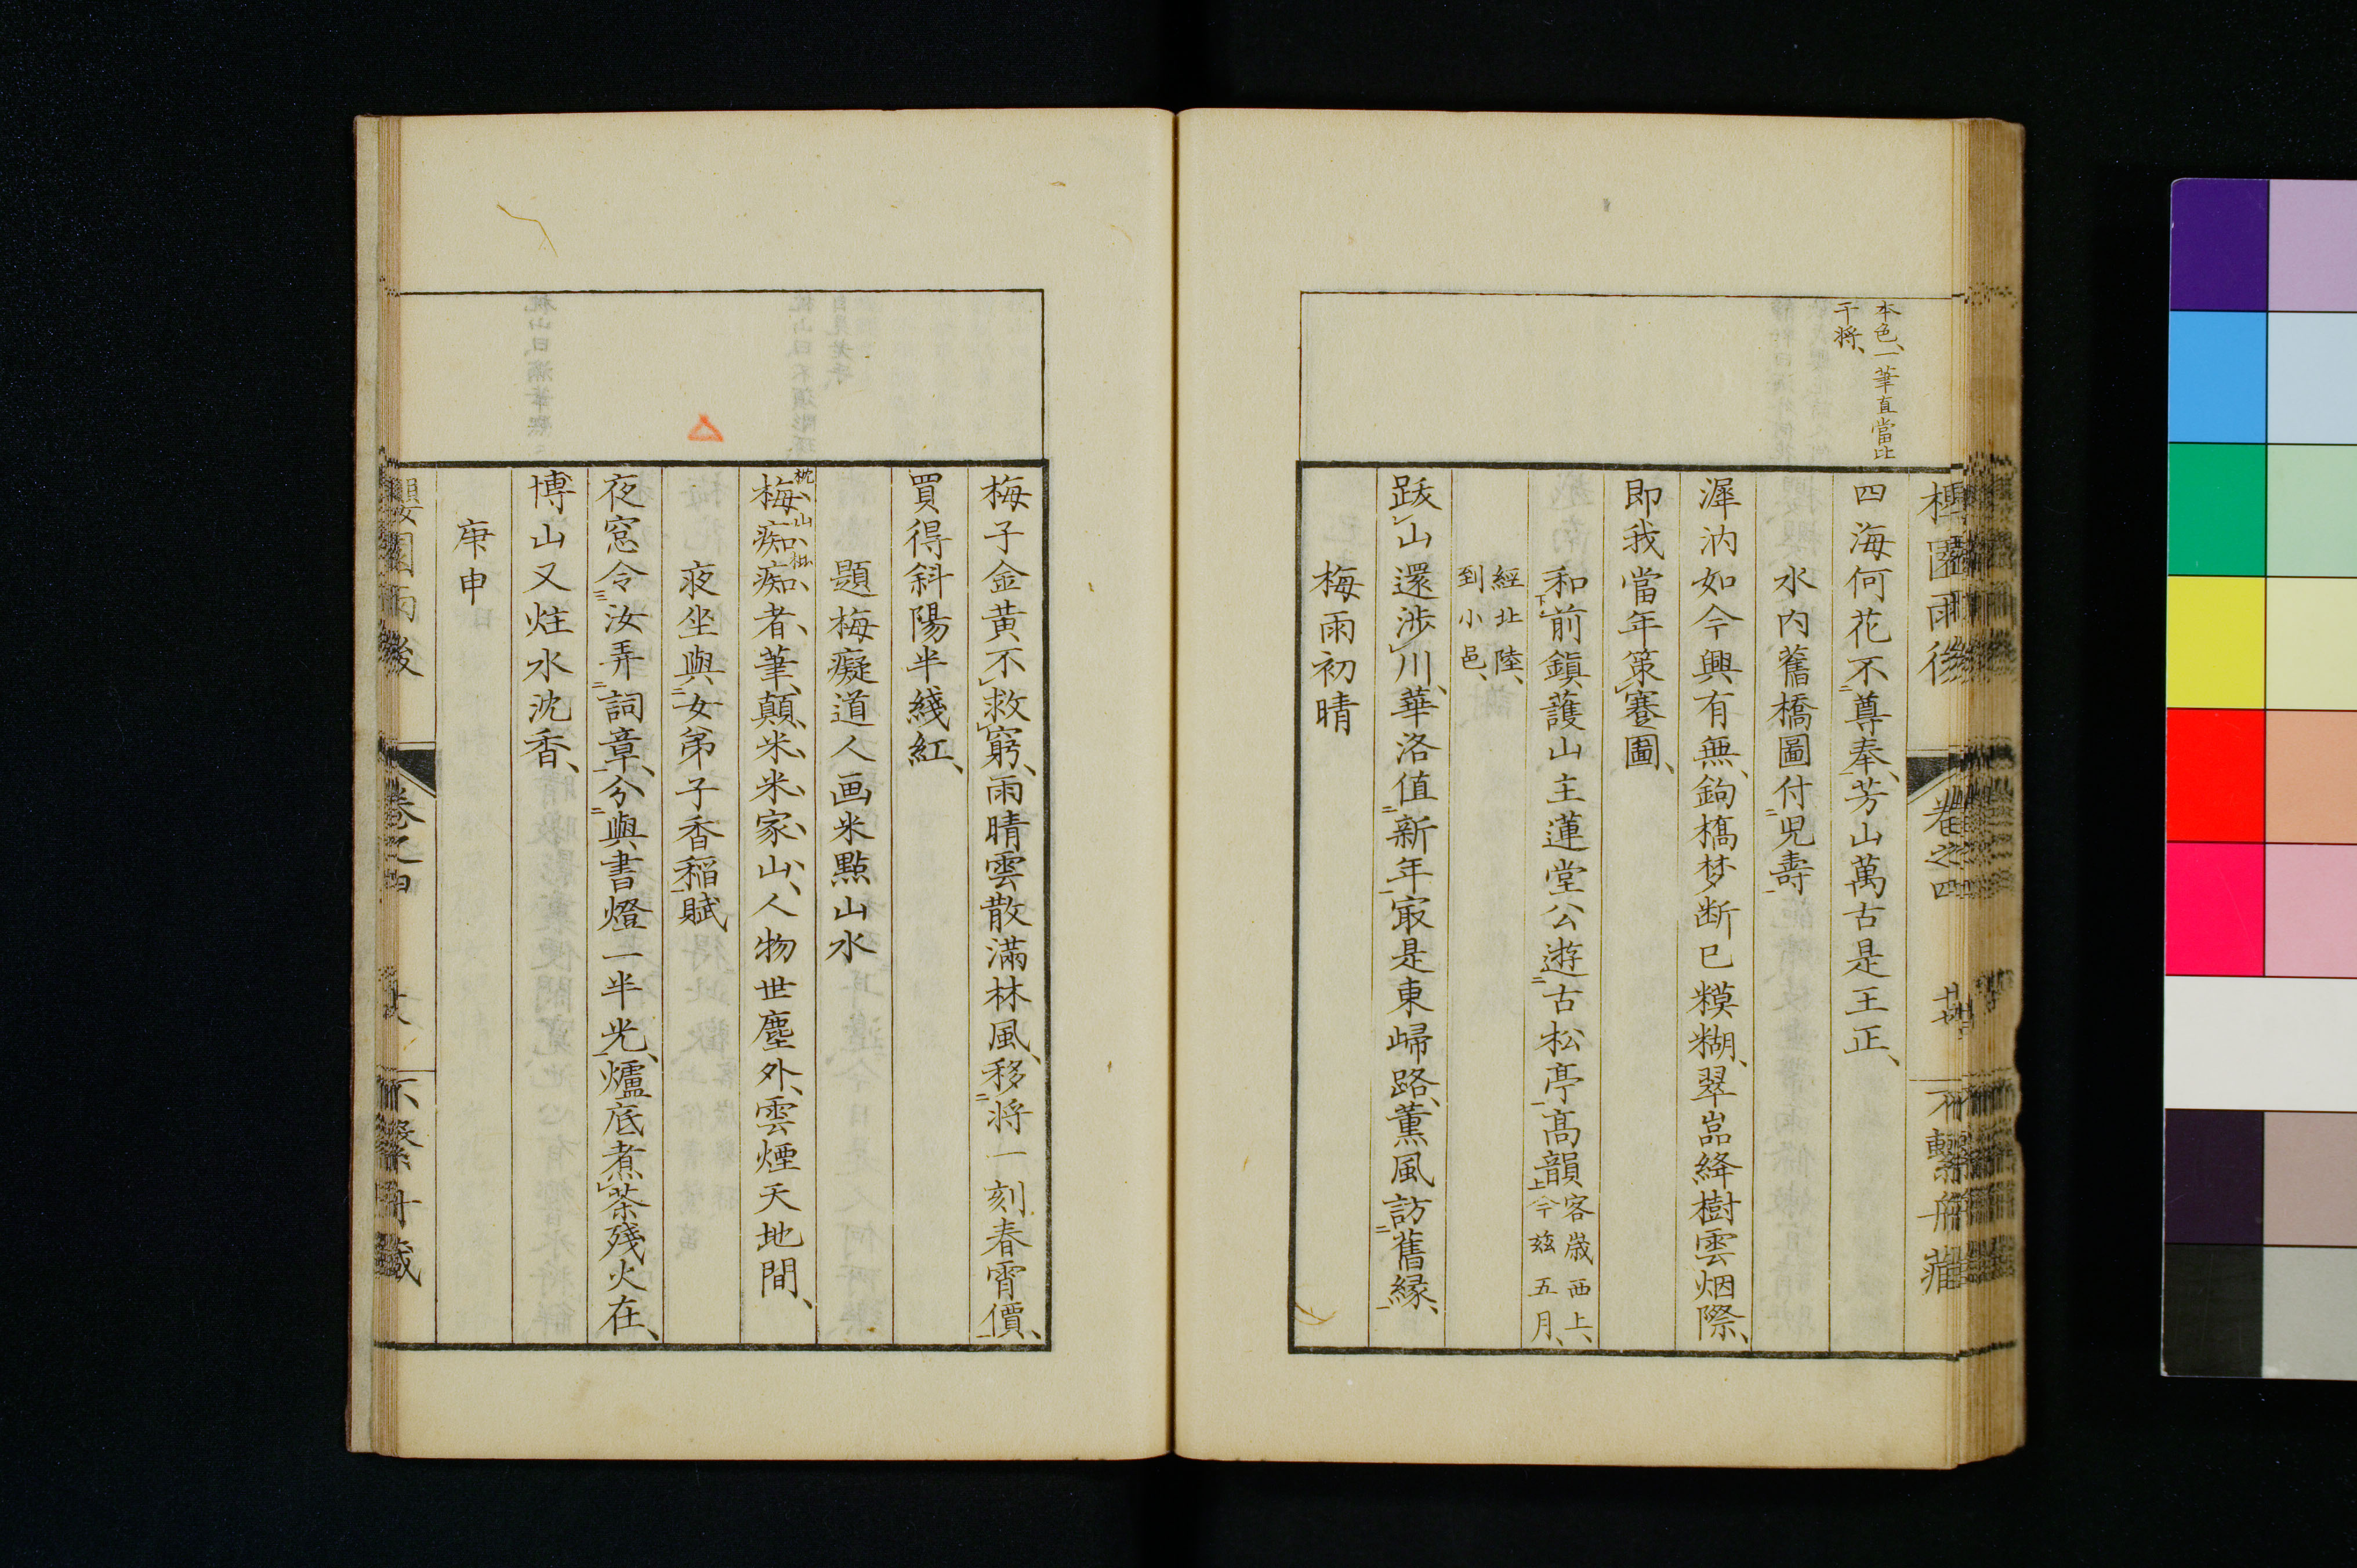 本色、一筆直當比
干将、
四海何花不尊奉、芳山萬古是王正、
水内舊橋圖付児壽
渥汭如今興有無、鉤橋梦断已糢糊、翠嵓絳樹雲烟際、
即我當年策蹇圖、
和前鎮護山主蓮堂公遊古松亭高韻 客歳西上、今玆五月、
經北陸、
到小邑、
跋山還渉川、華洛值新年、寂是東歸路、薫風訪舊緣、
梅雨初晴
梅子金黄不救窮、雨晴雲散滿林風、移将一刻春宵價、
買得斜陽半綫紅、
題梅癡道人画米點山水
梅痴痴者筆顛米、米家山人物世塵外、雲煙天地間、
夜坐與女弟子香稲賦
夜窓令汝弄詞章、分與書燈一半光、爐底煮茶殘火在、
博山又炷水沈香、
庚申
卷之四